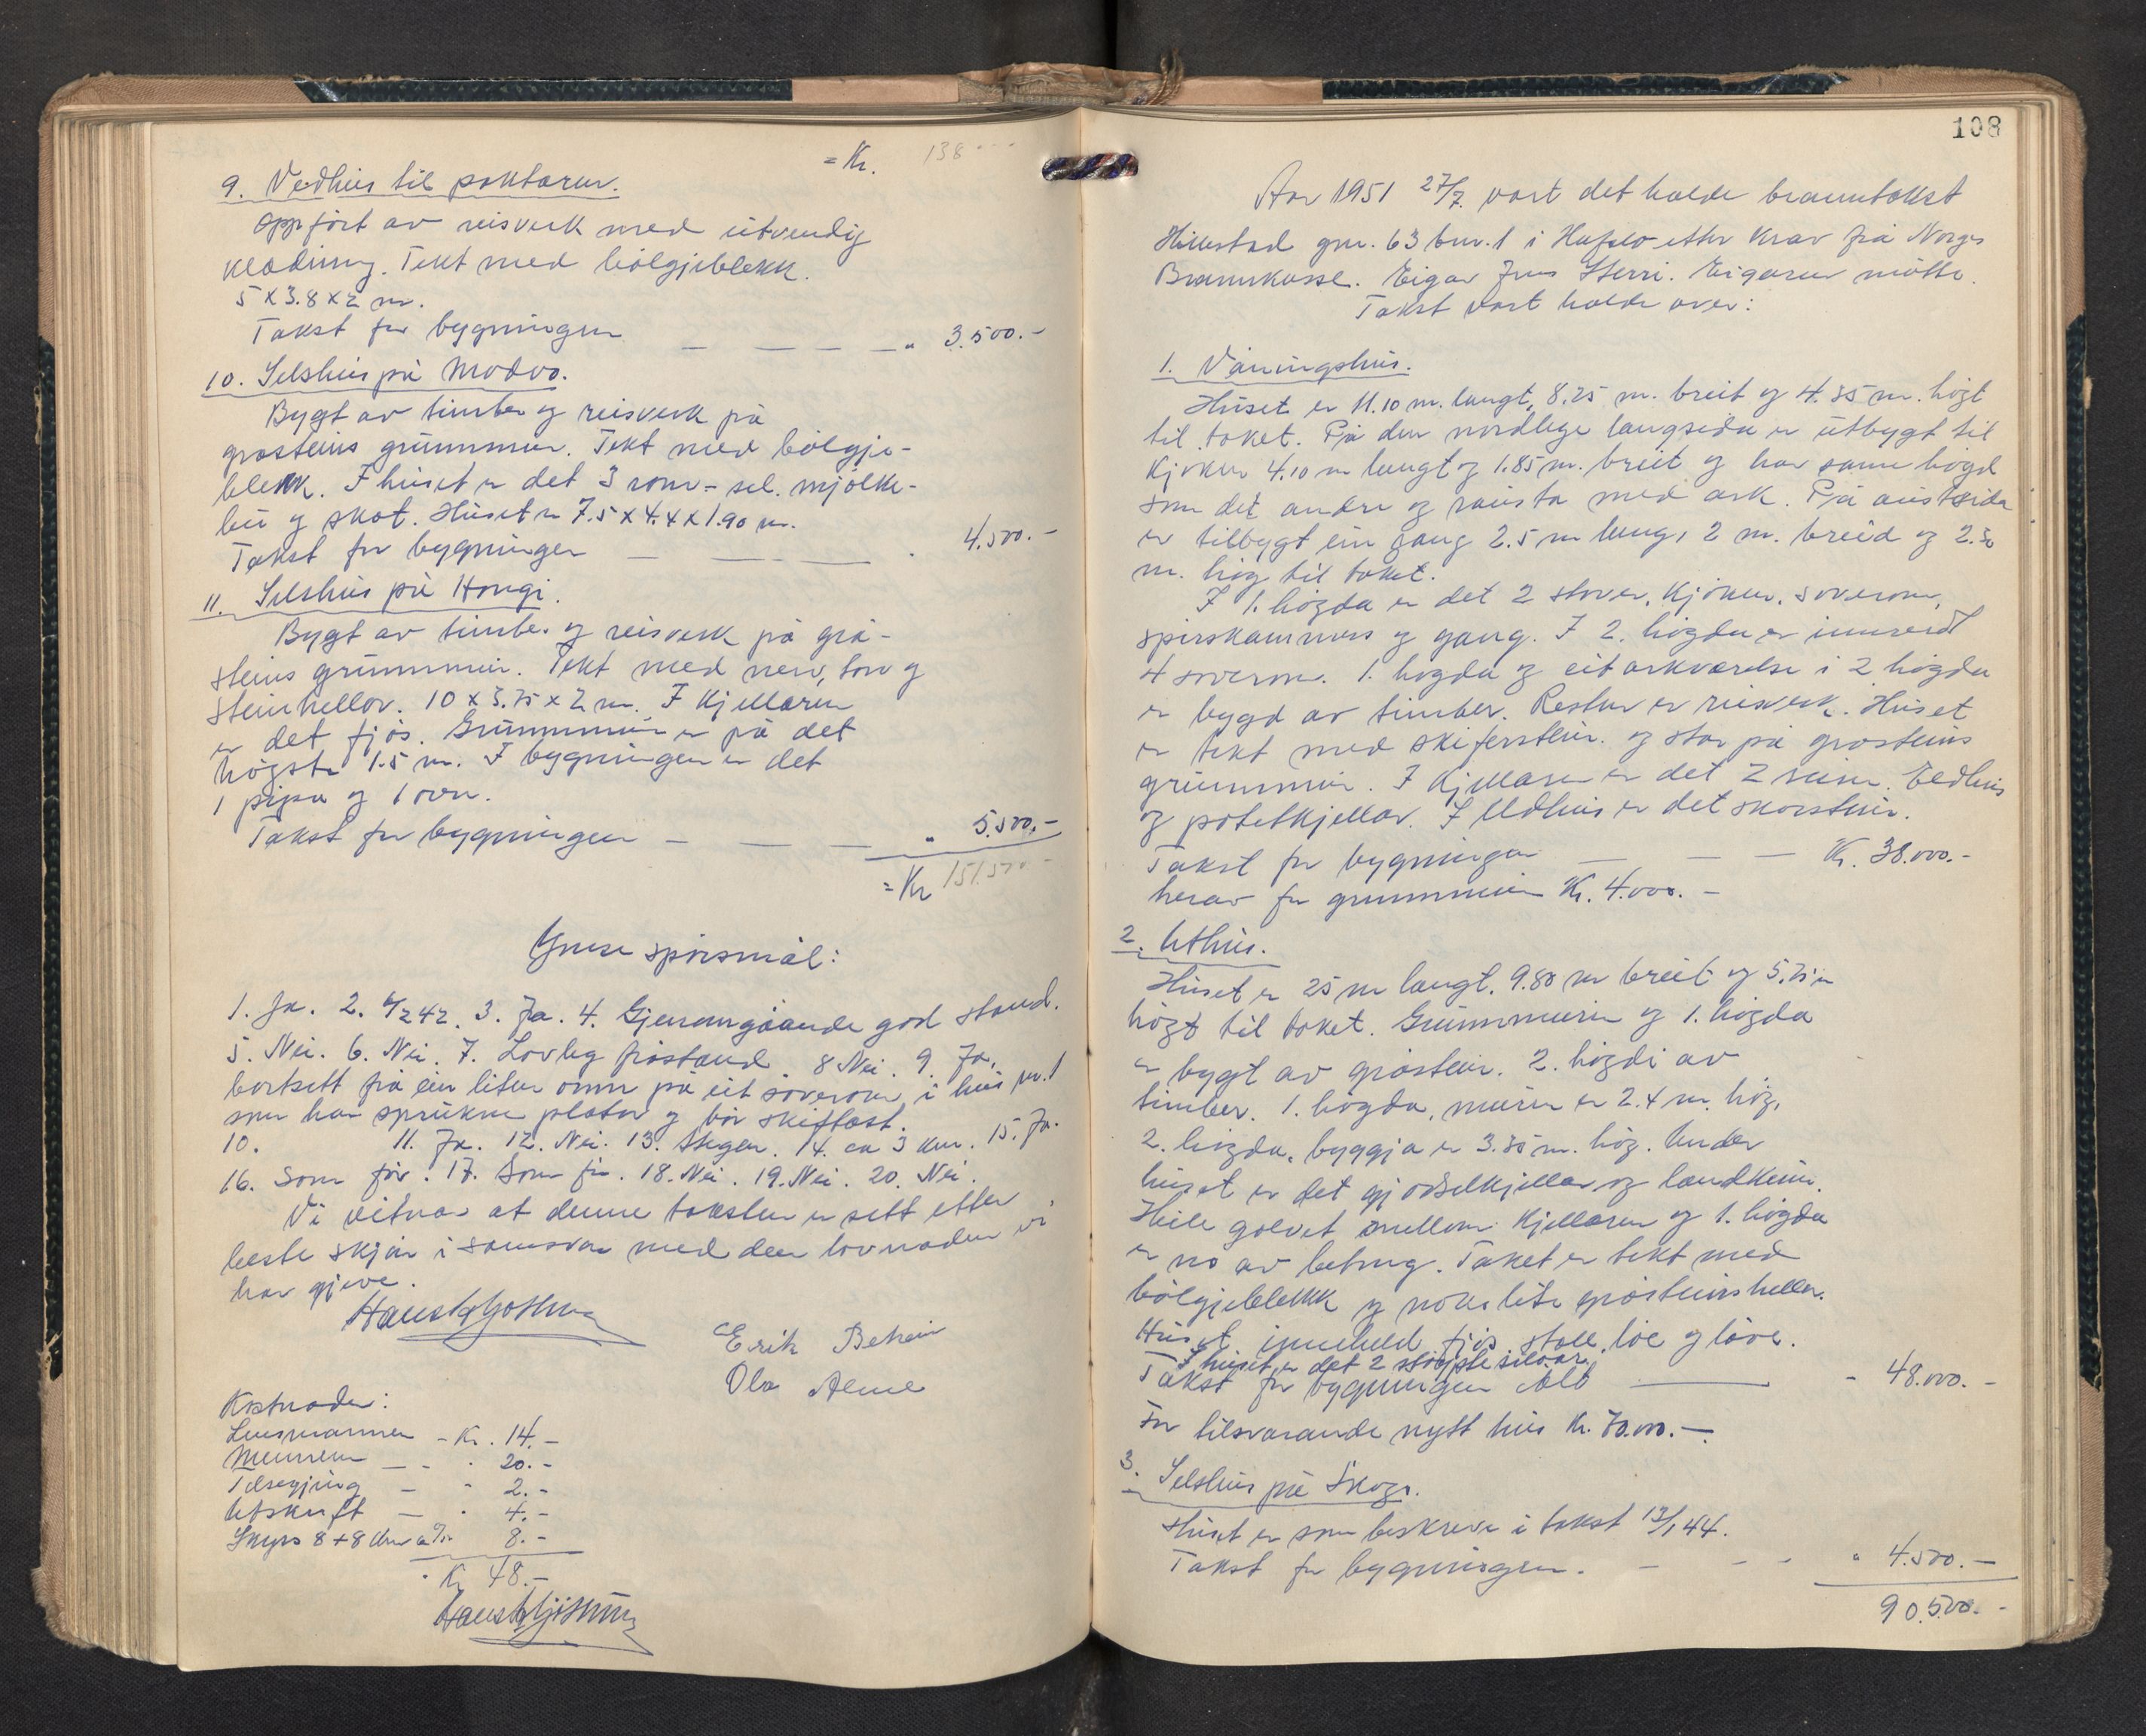 = Kr. 138
9. Vedhus til paktaren.
Oppført av reisverk med utvendig
kledning. Tekt med bølgjeblekk.
5 x 3.8 x 2 m.
Takst for bygningen — — — — " 3.500.-
10. Selshus på Modvo.
Bygt av timber og reisverk på
gråsteins grunnmur. Tekt med bølgje-
blekk. I huset er det 3 rom - sel. mjølke-
bu og skot. Huset er 7.5 x 4.4 x 1.90 m.
Takst for bygningen — — — " 4.500.-
11. Selshus på Haugi.
Bygt av timber og reisverk på grå-
steins grunnmur. Tekt med never, torv og
steinhellor. 10 x 3.75 x 2 m. I kjellaren
er det fjøs. Grunnmuren er på det
høgste 1.5 m. I bygningen er det
1 pipa og 1 ovn.
Takst for bygningen — — — " 5.500.-
= Kr 151.500 -
Ymse spørsmål:
1. Ja. 2. 4/2 42. 3. Ja. 4. Gjenomgåande god stand.
5. Nei. 6. Nei. 7. Lovleg fråstand. 8 Nei. 9. Ja,
bortsett frå ein liten omn på eit soverom i hus nr. 1
som har sprukne plator og bør skiftast.
10. 11. Ja. 12. Nei. 13. Stegen. 14. ca 3 km. 15. Ja.
16. Som før. 17. Som før. 18. Nei. 19. Nei. 20. Nei.
Vi vitnar at denne taksten er sett etter
beste skjøn i samsvar med den lovnaden vi
har gjeve.
Erik Beheim
Ola Alme
Kostnader:
Lensmannen - Kr. 14.-
Mennene — - " 20.-
Tilsegjing — " 2.-
Utskrift — " 4.-
Skyss 8 + 8 km 8.-
Kr 48.-
108
Aar 1951 27/7. vart det halde branntakst
Hillestad gnr. 63 bnr. 1 i Hafslo etter krav frå Norges
Brannkasse. Eigar Jens Sterri. Eigaren møtte.
Takst vart halde over:
1. Våningshus.
Huset er 11.10 m. langt, 8.25 m. breit og 4.35 m. høgt
til taket. På den nordlege langsida er utbygt til
kjøken 4.10 m langt og 1.85 m. breit og har same høgd
som det andre og røusta med ark. På austsida
er tilbygt ein gang 2.5 m lang, 2 m. breid og 2.30
m. høg til taket.
I 1. høgda er det 2 stover, kjøken, soverom,
spiskammers og gang. I 2. høgda er innreidt
4 soverom. 1. høgda og eit arkværelse i 2 høgda
er bygd av timber. Resten er reisverk. Huset
er tekt med skiferstein og star på gråsteins
grunnmur. I kjellaren er det 2 rom. Eldhus
og potetkjellar. I eldhus er det skorstein.
Takst for bygningen — — — Kr. 38.000.-
herav for grunnmuren Kr. 4.000.-
2. Uthus.
Huset er 25 m langt. 9.80 m breit og 5.75 m
høgt til taket. Grunnmuren og 1. høgda
er bygt av gråstein. 2. høgdi av
timber. 1. høgda, muren er 2.4 m. høg,
2. høgda, byggja er 3.35 m. høg. Under
huset er det gjødselkjellar og landkum.
Heile golvet mellom kjellaren og 1. høgda
er no av betong. Taket er tekt med
bølgjeblekk og noko lite gråsteinsheller.
Huset inneheld fjøs, stall, løe og låve.
I huset er det 2 støypte siloar.
Takst for bygningen — - 48.000.-
For tilsvarande nytt hus Kr. 70.000.-
3. Selshus på Skogi.
Huset er som beskreve i takst 13/1 44.
Takst for bygningen. — - - " 4.500.-
90.500.-